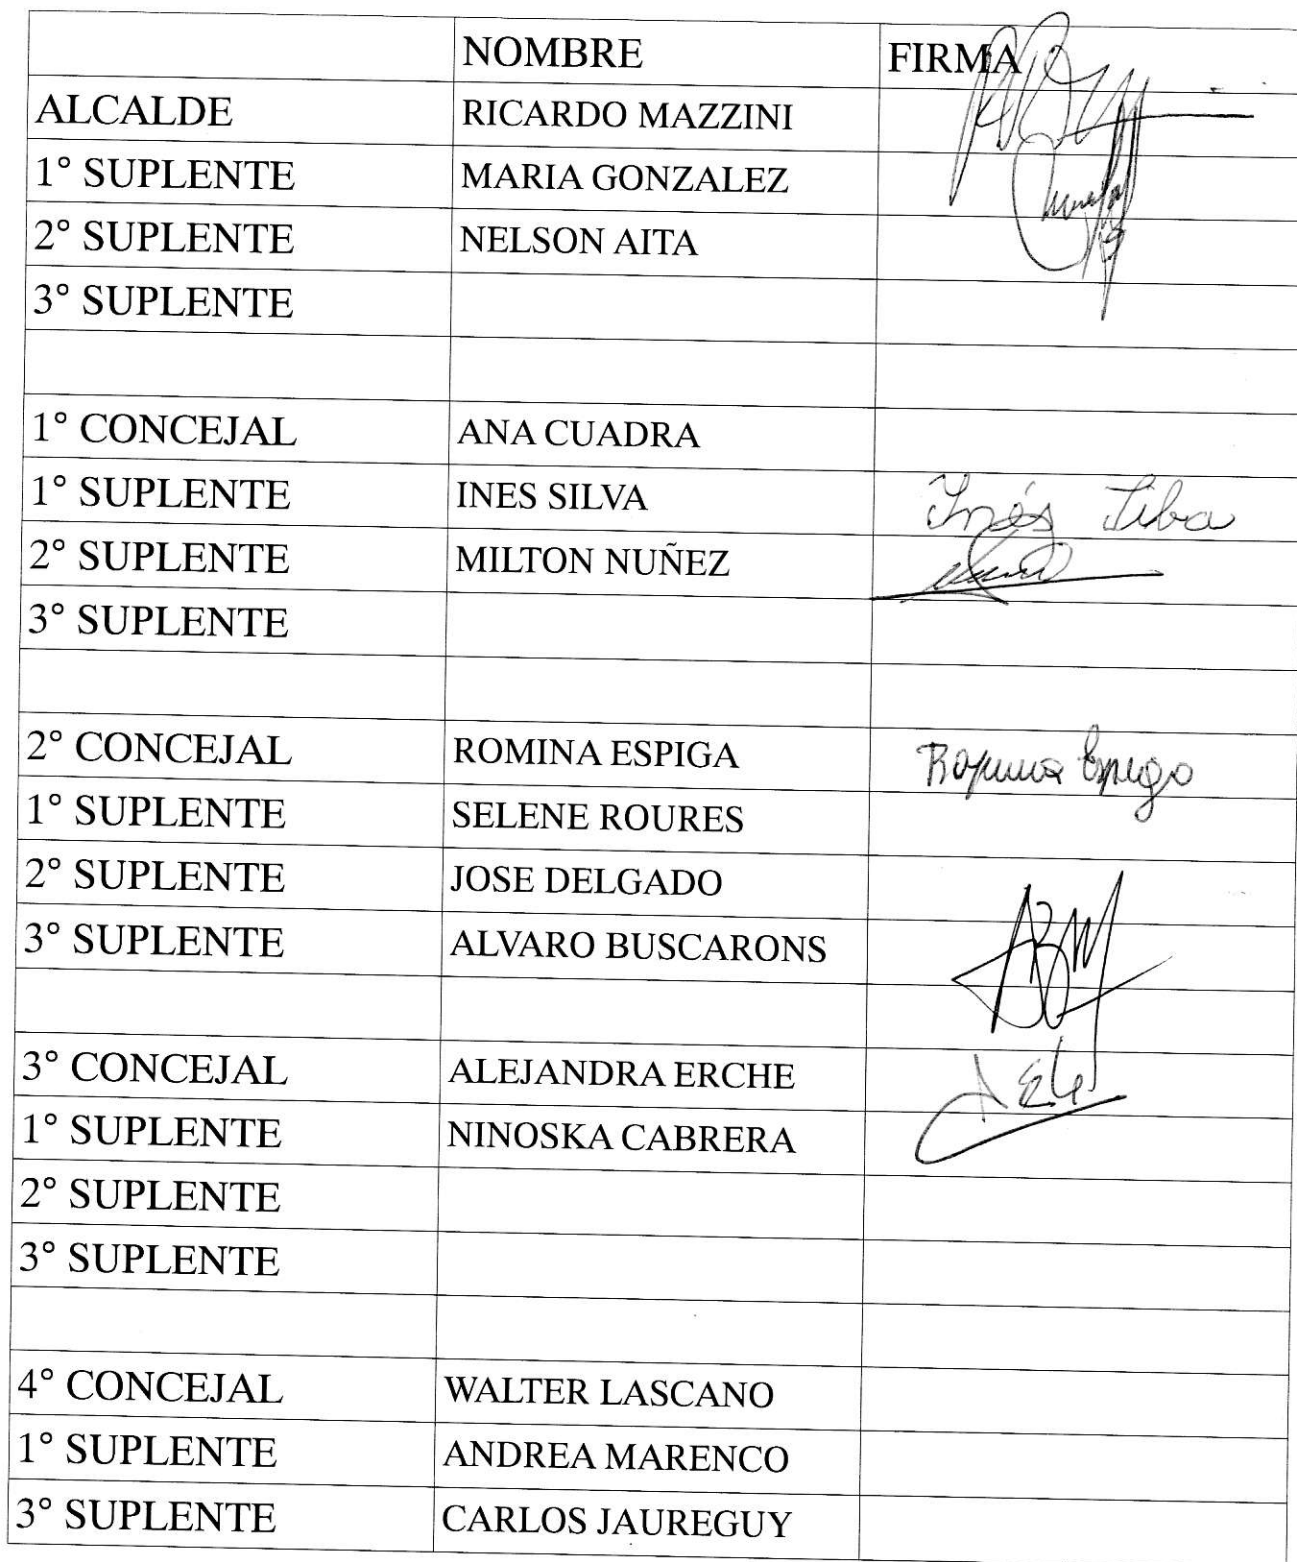 NOMBRE FIRMA
ALCALDE RICARDO MAZZINI
1° SUPLENTE MARIA GONZALEZ
2° SUPLENTE NELSON AITA
3° SUPLENTE
1° CONCEJAL ANA CUADRA
1° SUPLENTE INES SILVA Inés Silva
2° SUPLENTE MILTON NUÑEZ
3° SUPLENTE
2° CONCEJAL ROMINA ESPIGA Romina Espiga
1° SUPLENTE SELENE ROURES
2° SUPLENTE JOSE DELGADO
3° SUPLENTE ALVARO BUSCARONS
3° CONCEJAL ALEJANDRA ERCHE
1° SUPLENTE NINOSKA CABRERA
2° SUPLENTE
3° SUPLENTE
4° CONCEJAL WALTER LASCANO
1° SUPLENTE ANDREA MARENCO
3° SUPLENTE CARLOS JAUREGUY